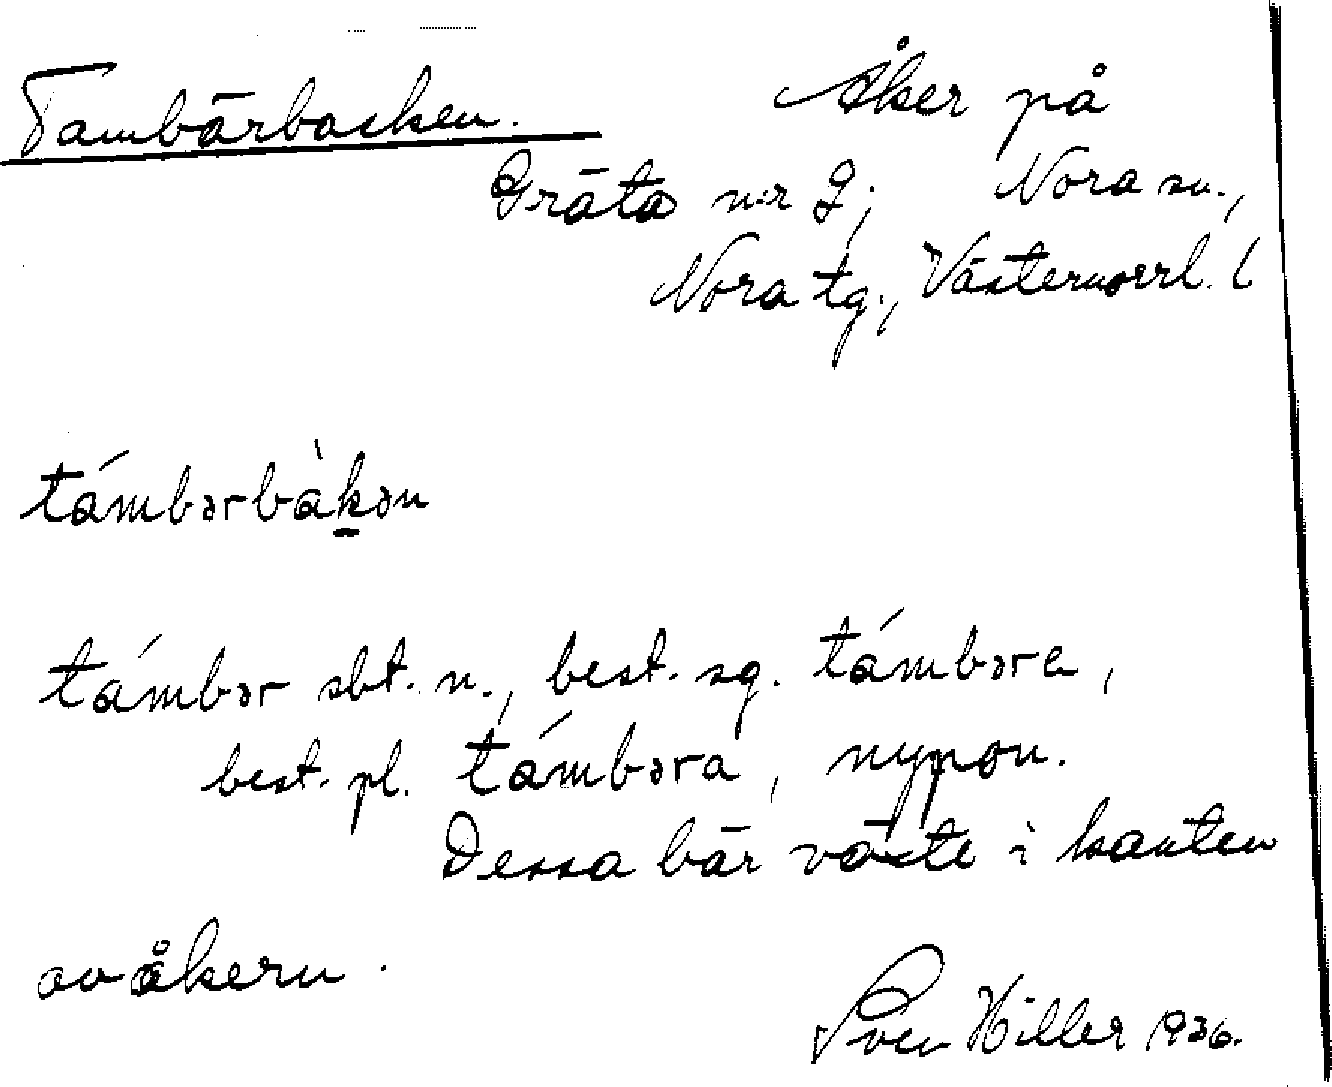 Tambärbacken. Åker på
Gräta n:r 2; Nora sn.,
Nora tg., Västernorrl. l
támbərbàkən
támbər sbt. n., best. sg. támbəre,
best. pl. támbəra, nypon.
Dessa bär växte i kanten
av åkern.
Sven Hiller 1936.